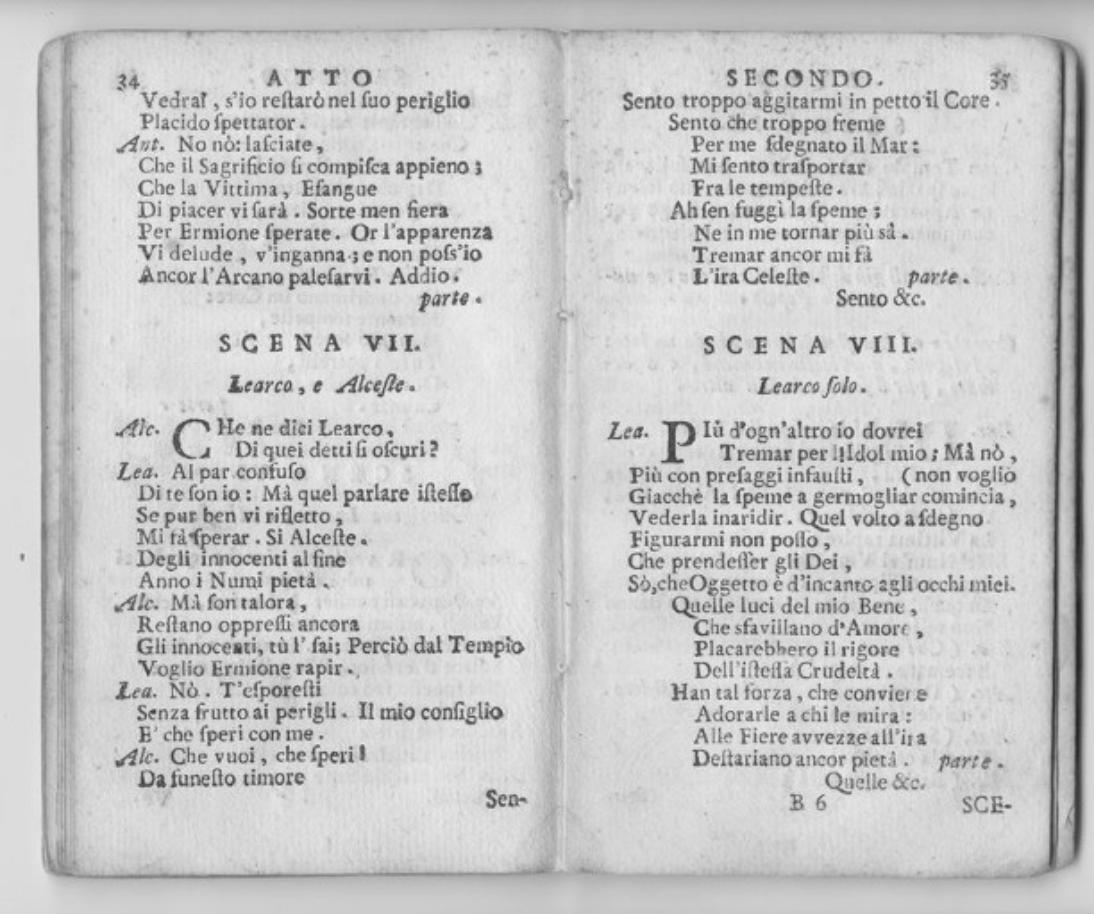 34 ATTO
Vedraí, s'io reſtarò nel ſuo periglio
Placido ſpettator.
Ant. No nò: laſciate,
Che il Sagrificio ſi compiſca appieno;
Che la Vittima, Eſangue
Di piacer vi ſarà. Sorte men fiera
Per Ermione ſperate. Or l'apparenza
Vi delude, v'inganna; e non poſs'io
Ancor l'Arcano paleſarvi. Addio.
parte.
SCENA VII.
Learco, e Alceſte.
Alc. CHe ne dici Learco,
Di quei detti ſi oſcuri?
Lea. Al par confuſo
Di te ſon io: Mà quel parlare iſteſſo
Se pur ben vi rifletto,
Mi fà ſperar. Si Alceſte.
Degli innocenti al fine
Anno i Numi pietà.
Alc. Mà ſon talora,
Reſtano oppreſſi ancora
Gli innocenti, tù l' ſai; Perciò dal Tempio
Voglio Ermione rapir.
Lea. Nò. T'eſporeſti
Senza frutto ai perigli. Il mio conſiglio
E' che ſperi con me.
Alc. Che vuoi, che ſperi!
Da funeſto timore
Sen-
SECONDO. 35
Sento troppo aggitarmi in petto il Core.
Sento che troppo freme
Per me ſdegnato il Mar:
Mi ſento traſportar
Fra le tempeſte.
Ah ſen fuggì la ſpeme;
Ne in me tornar più sà.
Tremar ancor mi fà
L'ira Celeſte. parte.
Sento &c.
SCENA VIII.
Learco ſolo.
Lea. PIù d'ogn'altro io dovrei
Tremar per l'Idol mio; Mà nò,
Più con preſaggi infauſti, (non voglio
Giacchè la ſpeme a germogliar comincia,
Vederla inaridir. Quel volto a ſdegno
Figurarmi non poſſo,
Che prendeſſer gli Dei,
Sò, che Oggetto è d'incanto agli occhi miei.
Quelle luci del mio Bene,
Che sfavillano d'Amore,
Placarebbero il rigore
Dell'iſteſſa Crudeltà.
Han tal forza, che conviene
Adorarle a chi le mira:
Alle Fiere avvezze all'ira
Deſtariano ancor pietà. parte.
Quelle &c.
B 6 SCE-